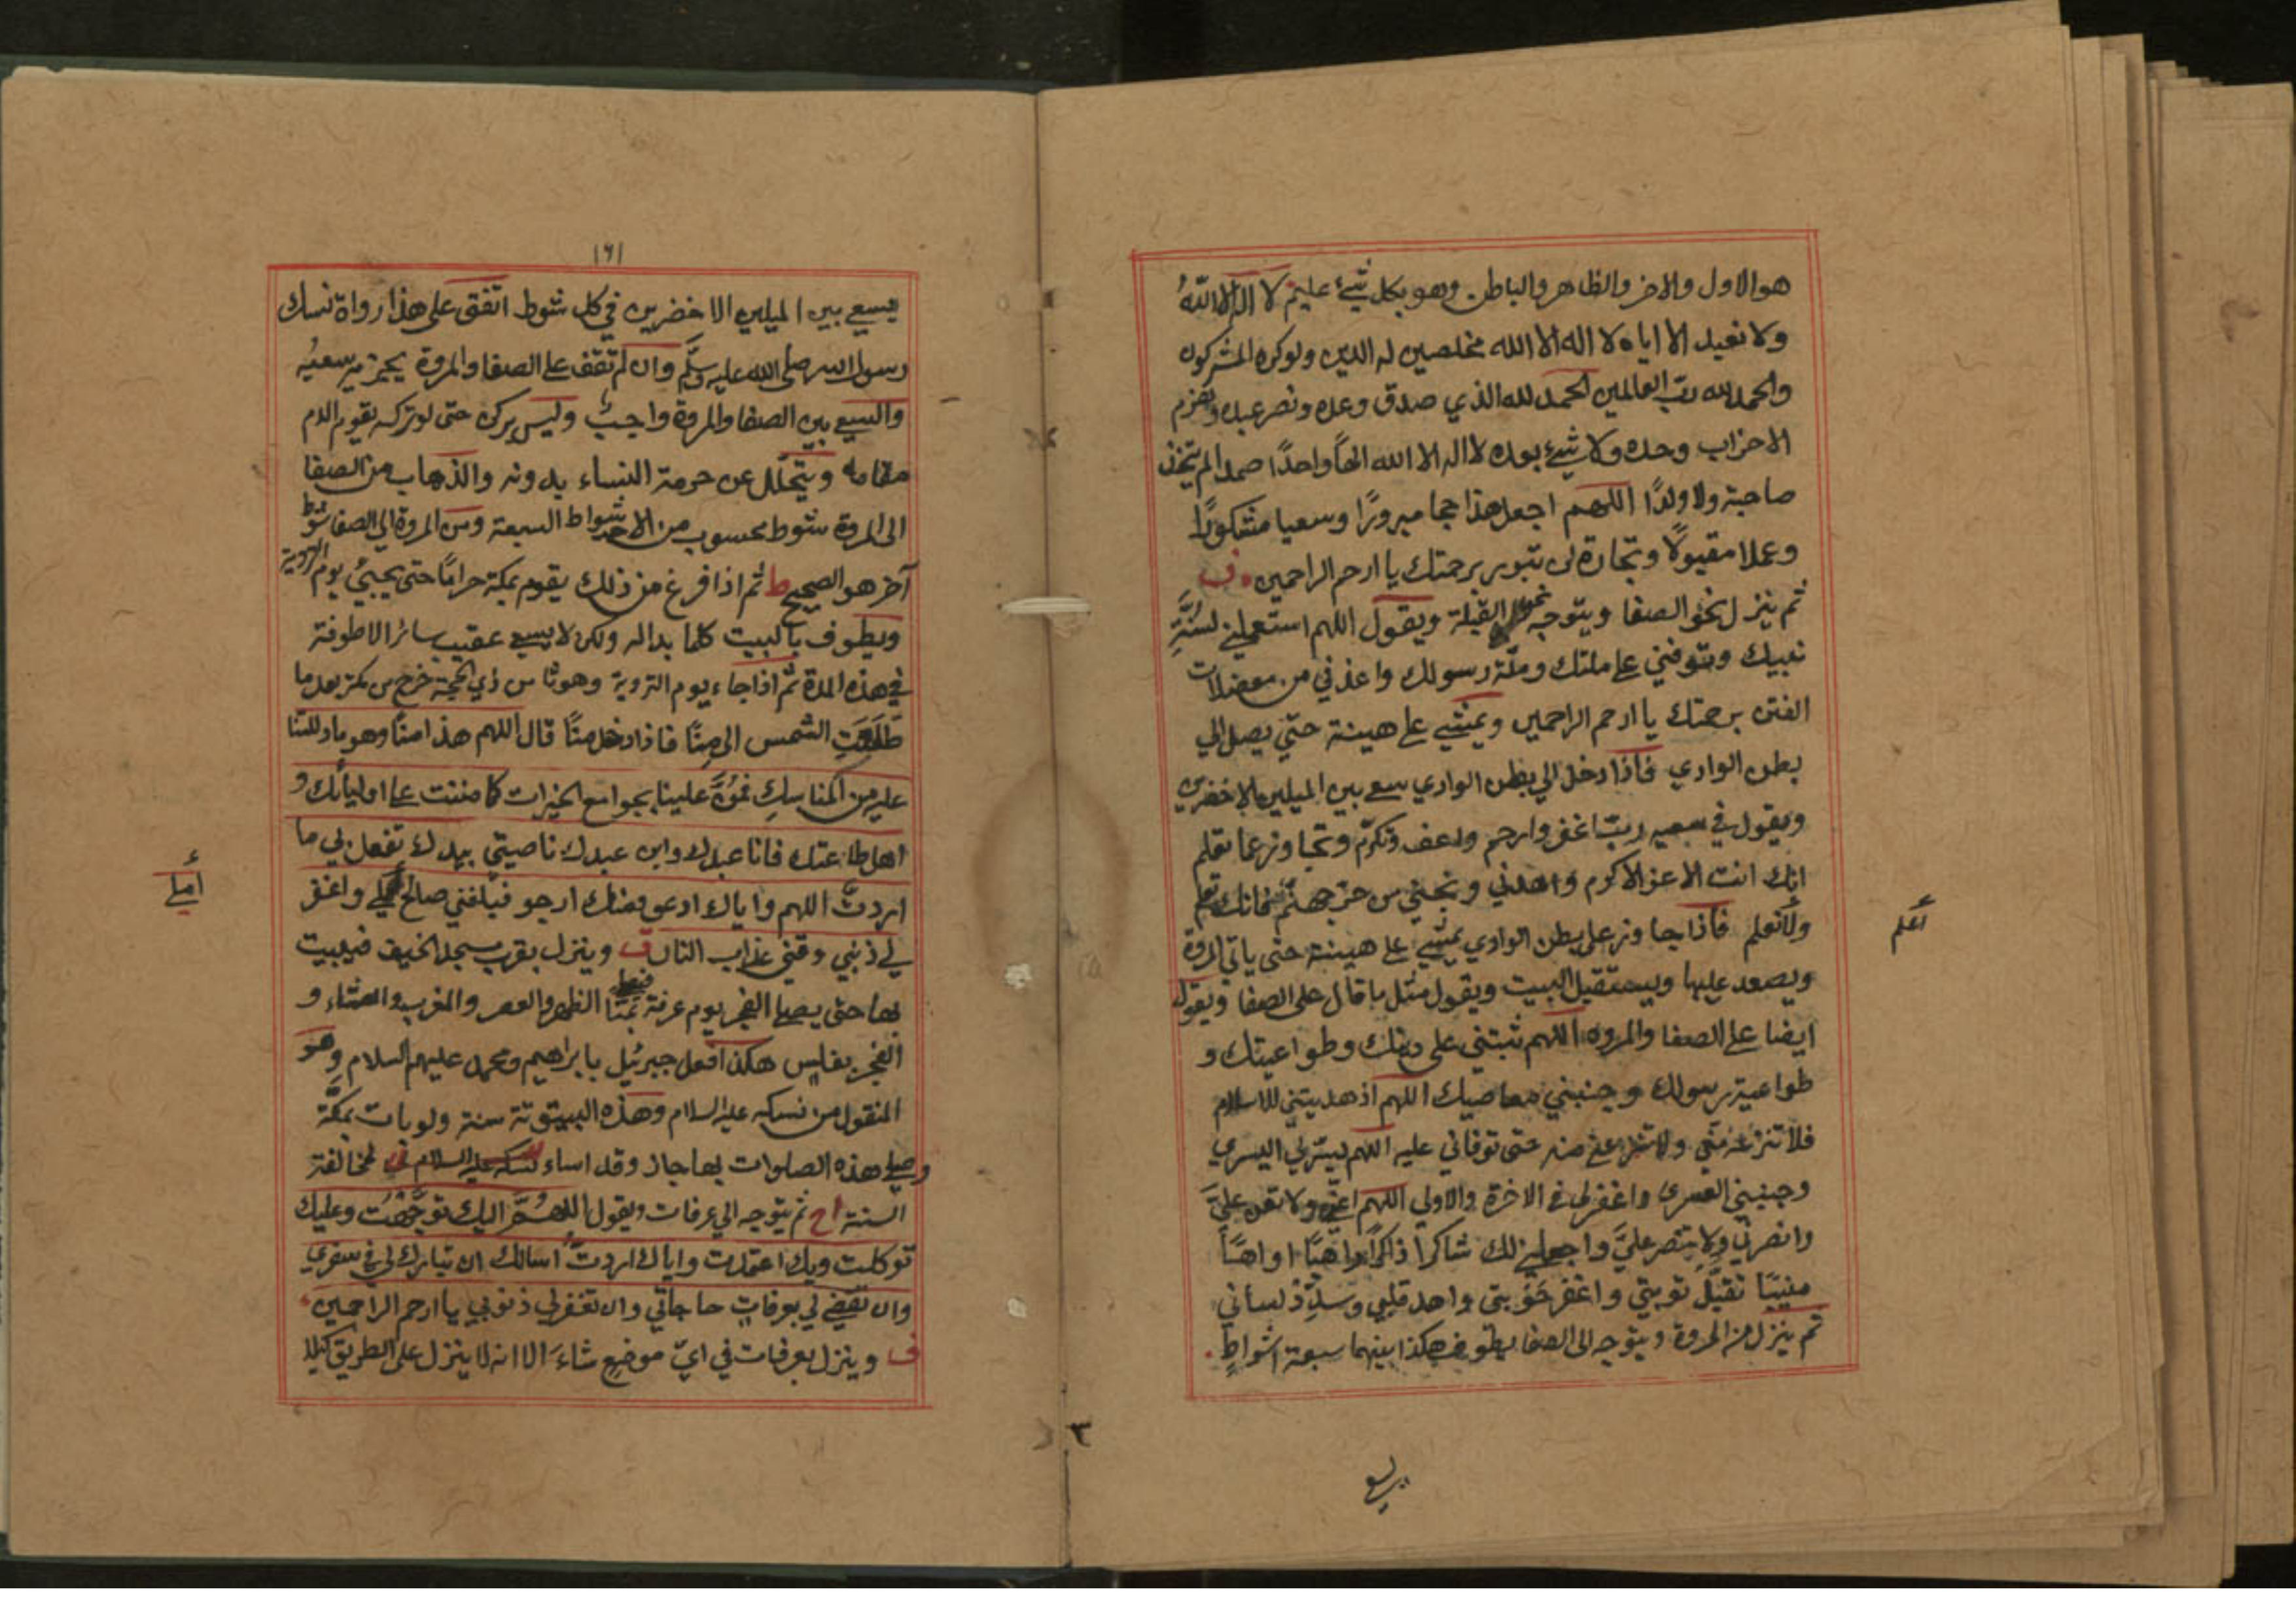 هو الاول والاخر والظاهر والباطن وهو بكل شيئ عليم لا اله الا الله
ولا نعبد الا اياه لا اله الا الله مخلصين له الدين ولوكره المشركون
والحمد لله ربّ العالمين الحمد لله الذي صدق وعده ونصر عبده وهزم
الاحزاب وحده ولا شيئ بعده لا اله الا الله الهاً واحدًا صمدا لم يتخذ
صاحبة ولا ولدًا اللهم اجعل هذا حجا مبرورًا وسعيا مشكورًا
وعملا مقبولًا وتجارة لن تبور برحمتك يا ارحم الراحمين ف
ثم ينزل نحو الصفا ويتوجه نحو القبلة ويقول اللهم استعملني لسنّةِ
نبيك وتتوفني على ملتك وملّة رسولك واعذني من معضلات
الفتن برحمتك يا ارحم الراحمين ويمشي على هينة حتّي يصل الي
بطن الوادي فاذا دخل الي بطن الوادي سعى بين الميلين الاخضرين
ويقول في سعيه ربّ اغفر وارحم واعف وتكرّم وتجاوز عما تعلم
انك انت الاعز الاكرم واهدني ونجني من حرّ جهنّم فانك تعلم
ولا نعلم فاذا جاوز على بطن الوادي يمشي على هينة حتى ياتي المروة
ويصعد عليها ويستقبل البيت ويقول مثل ما قال على الصفا ويقول
ايضا على الصفا والمروه اللهم ثبتني على دينك وطواعيتك و
طواعية رسولك وجنبني معاصيك اللهم اذ هديتني للاسلام
فلا تنزعه منّي ولا تنزعني منه حتى توفاني عليه اللهم يسّرلي اليسري
وجنبني العسرى واغفرلي في الاخرة والاولي اللهم اعنّي ولا تعن عليَّ
وانصرني ولا تنتصر عليَّ واجعلني لك شاكرا ذاكرًا راهبًا اواهًا
منيبًا تقبّل توبتي واغفر حَوْبتي واهد قلبي وسدِّدْ لساني
ثم ينزل من المروة ويتوجه الى الصفا يطوف هكذا بينهما سبعة اشواطٍ
اعلم
٣
يسع
١٦١
يسعى بين الميلين الاخضرين في كل شوط اتفق على هذا رواة نسك
رسول الله صلى الله عليه وسلّم وان لم تقف على الصفا والمروة يجزيه سعيُه
والسعي بين الصفا والمروة واجبٌ وليس بركن حتى لوتركه يقوم الدم
مقامه ويتحلّل عن حرمة النساء بدونه والذهاب من الصفا
الى المروة شوط محسوب من الاشواط السبعة ومن المروة الي الصفا شوط
آخر هو الصحيح ط ثم اذا فرغ من ذلك يقوم بمكة حرامًا حتى يجيئ يوم التروية
ويطوف بالبيت كلما بداله ولكن لا يسعى عقيب سائر الاطوفة
في هذه المدة ثم اذا جاء يوم التروية وهو ثامن ذي الحجة خرج من مكة بعد ما
طَلَعَتِ الشمس الى مِنًا فاذا دخل منًا قال اللهم هذا منًا وهو ما دللتنا
عليه من المناسِكِ فمُنَّ علينا بجوامع الخيرات كما مننت على اوليائك و
اهل طاعتك فانا عبدك وابن عبدك ناصيتي بيدك تفعل بي ما
اردتّ اللهم واياك ادعو ومنك ارجو فبلغني صالح واغفر
لي ذنبي وقني عذاب النار ف وينزل بقرب مسجد الخيف فيبيت
بها حتى يصلي الفجر يوم عرفة بمنًا الظهر والعصر والمغرب والعشاء و
الفجر بغلس هكذا فعل جبرئيل بابراهيم ومحمد عليهم السلام وهو
المنقول من نسكه عليه السلام وهذه البيتوتة سنة ولوبات بمكّة
وصلى هذه الصلوات بها جاز وقد اساء لمخالفة
السنة اح ثم يتوجه الي عرفات ويقول اللهُمَّ اليك توجَّهْتُ وعليك
توكلت وبك اعتمدت واياك اردتّ اسالك ان تبارك لي في سفري
وان تقضي لي بعرفاتٍ حاجاتي وان تغفرلي ذنوبي يا ارحم الراحمين
ف وينزل بعرفات في ايّ موضعٍ شاءَ الا انه لا ينزل على الطريق كيلا
املي